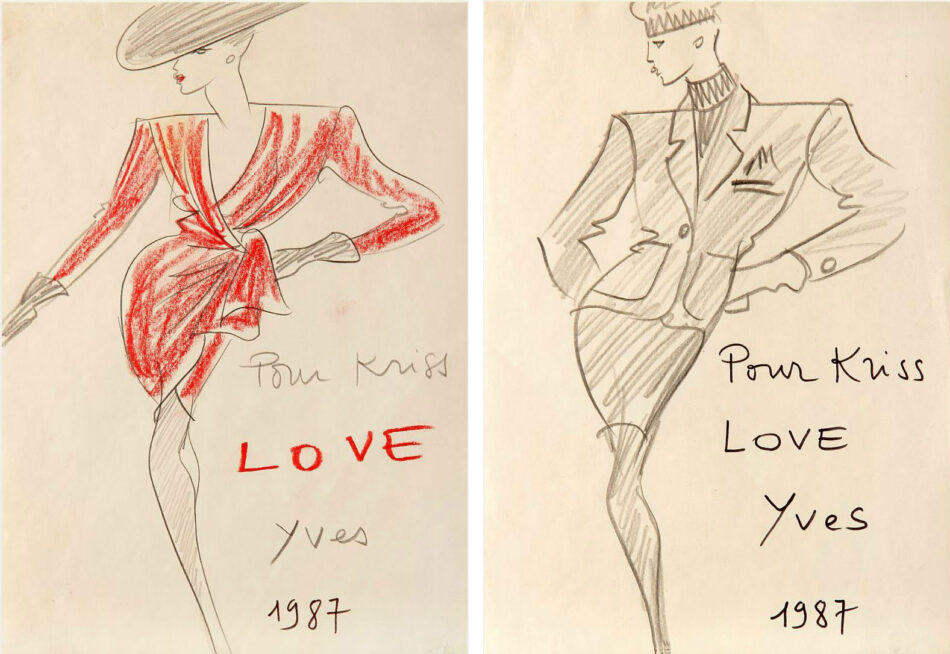 Pour Kriss
LOVE
Yves
1987
Pour Kriss
LOVE
Yves
1987